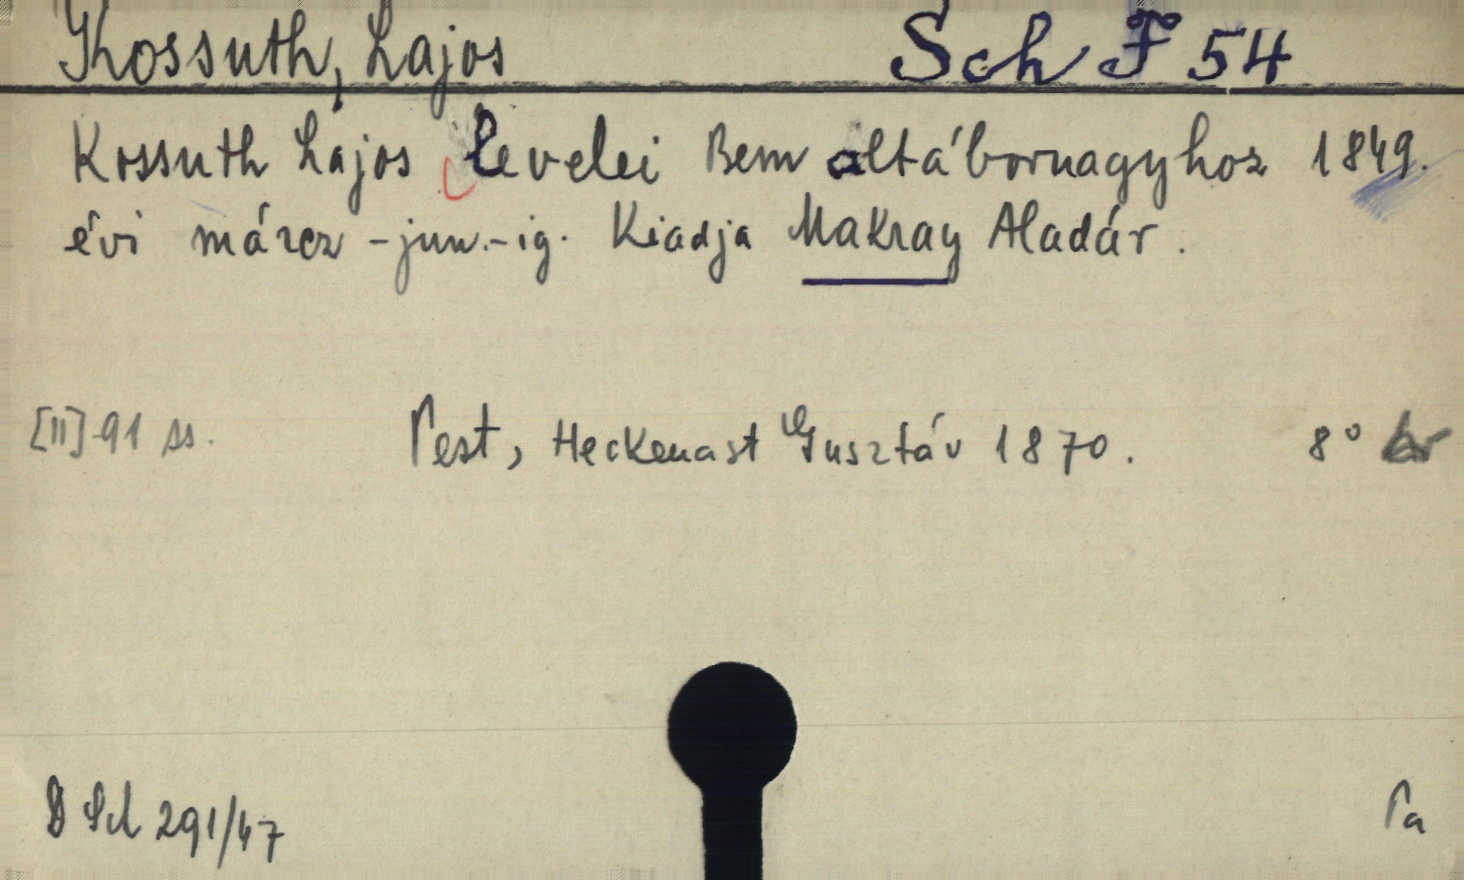 Kossuth, Lajos Sch F 54
Kossuth Lajos levelei Bem altábornagyhoz 1849.
évi márcz - jun.-ig. Kiadja Makray Aladár.
[II] 91 ss. Pest, Heckenast Gusztáv 1870. 8° br
D Sch 291/47 Pa